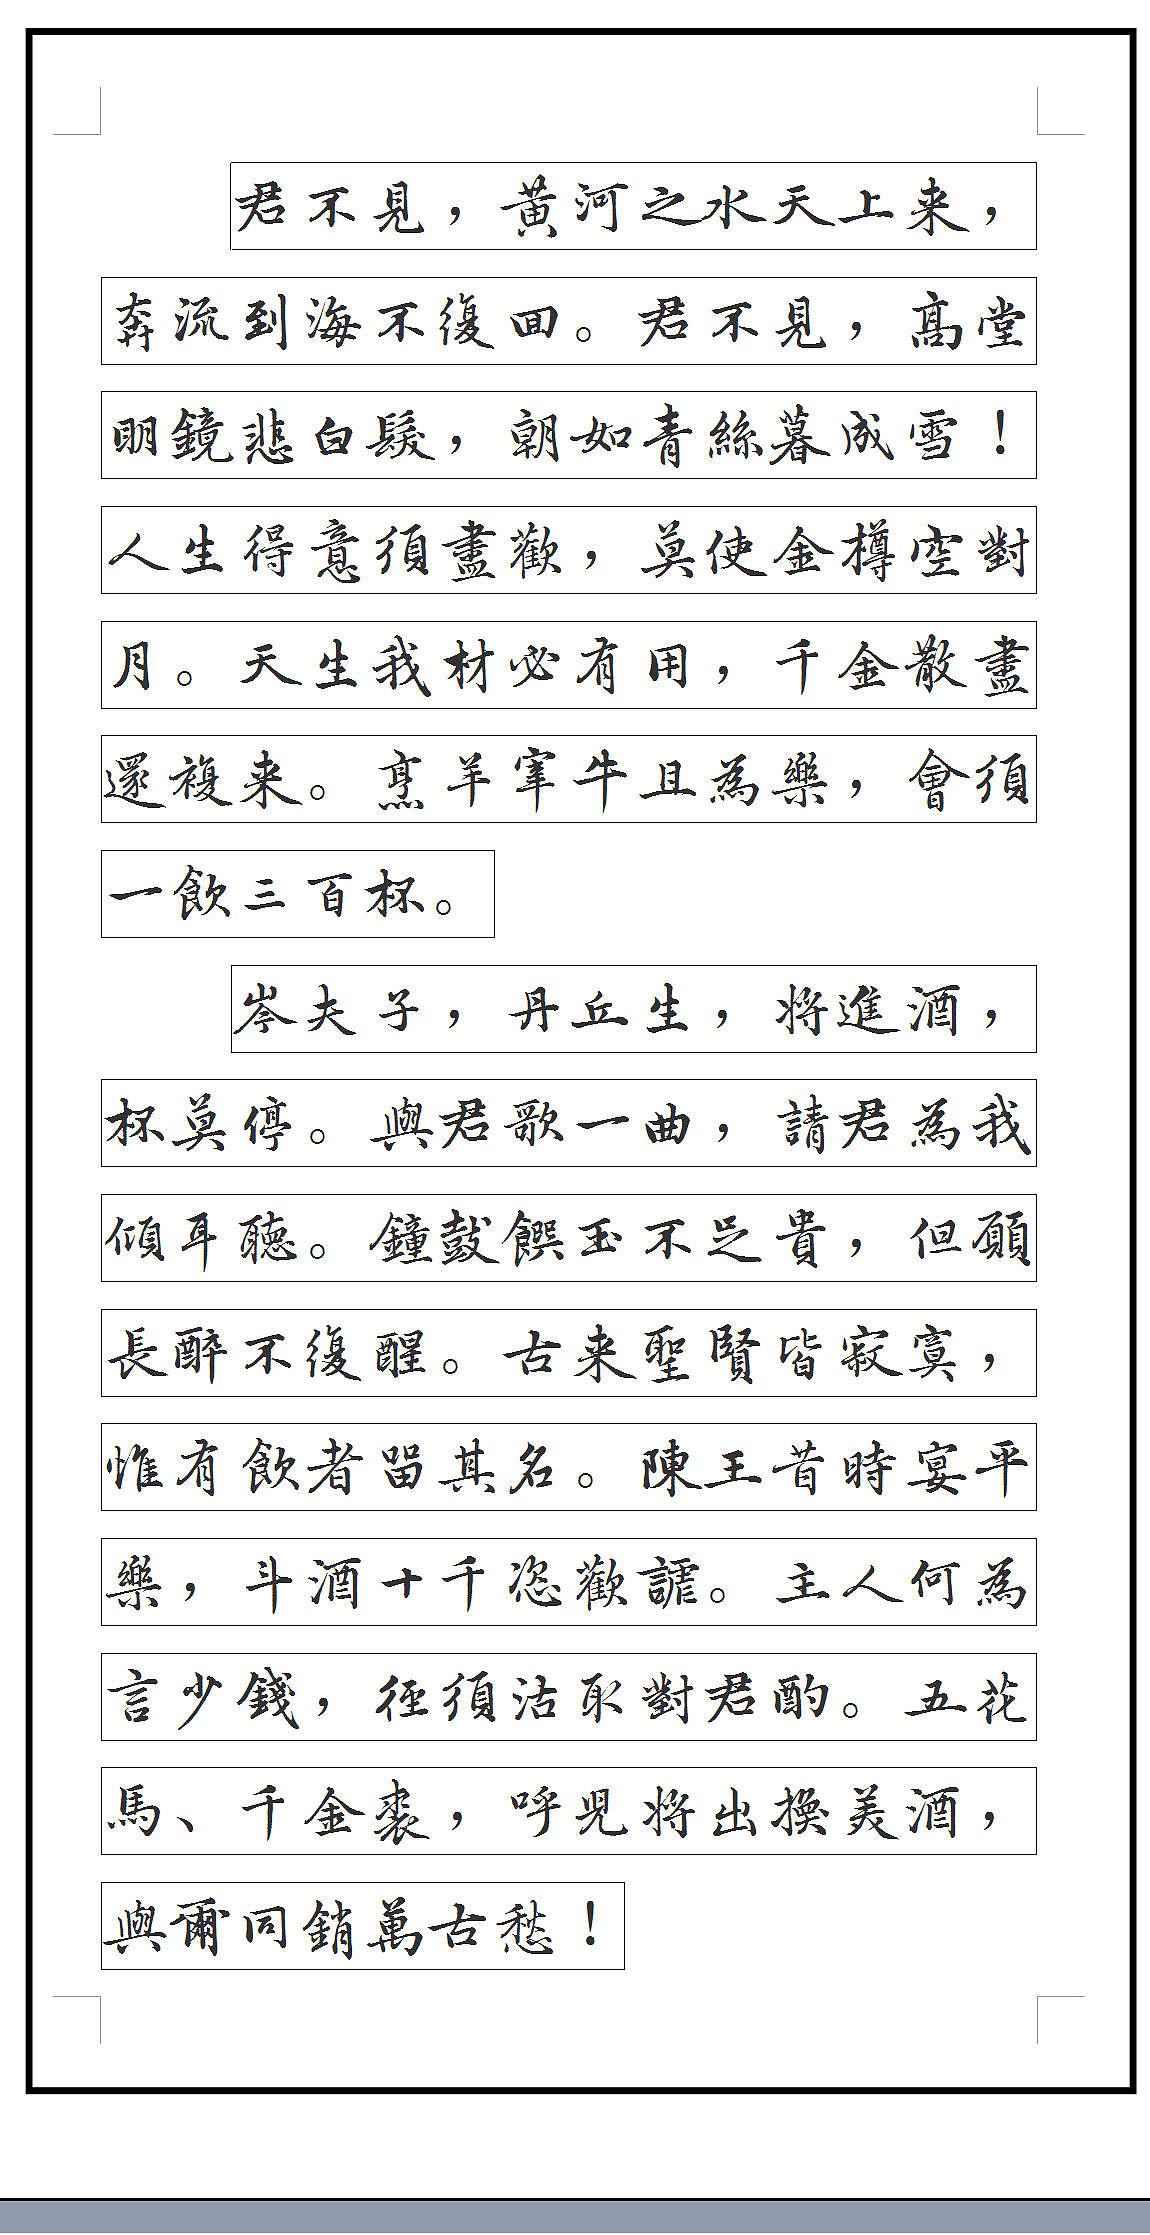 君不見，黃河之水天上来，
奔流到海不復回。君不見，高堂
明鏡悲白髮，朝如青絲暮成雪！
人生得意須盡歡，莫使金樽空對
月。天生我材必有用，千金散盡
還複来。烹羊宰牛且為樂，會須
一飲三百杯。
岑夫子，丹丘生，将進酒，
杯莫停。與君歌一曲，請君為我
傾耳聽。鐘鼓饌玉不足貴，但願
長醉不復醒。古来聖賢皆寂寞，
惟有飲者留其名。陳王昔時宴平
樂，斗酒十千恣歡謔。主人何為
言少錢，徑須沽取對君酌。五花
馬、千金裘，呼児将出換美酒，
與爾同銷萬古愁！